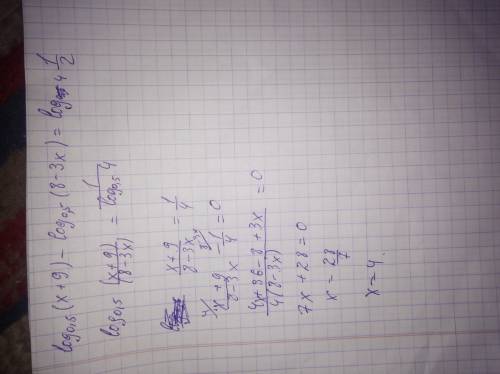 log₀,₅(x+9) − log₀,₅(8−3x) = log₄ 1/2
log₀,₅ (x+9)/(8−3x) = 1/log₀,₅ 4
(x+9)/(8−3x) = 1/4
(x+9)/(8−3x) − 1/4 = 0
(4x+36−8+3x)/(4(8−3x)) = 0
7x+28=0
x = 28/7
x=4.